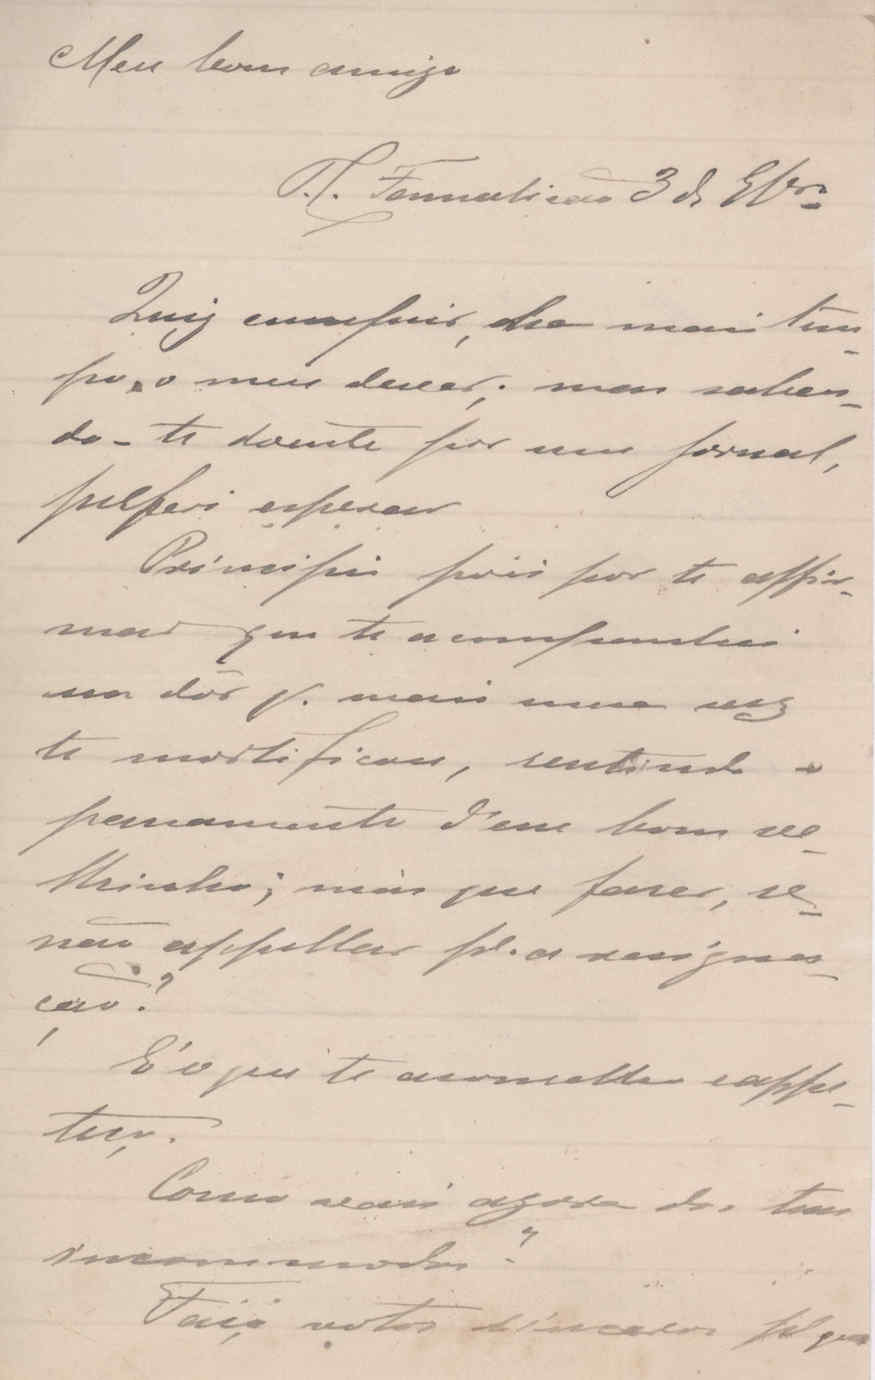 Meu bom amigo
V. Famalicão 3 de
Quiz cumprir, ha mais tem-
po, o meu dever; mas saben-
do-te doente por um jornal,
preferi esperar
Principio pois por te affir-
mar que te acompanhei
na dôr q. mais uma vez
te mortificou, sentindo o
passamento d'um bom ve-
lhinho; mas que fazer, se-
não appellar pª. a resigna-
ção?
É o que te aconselho e appe-
teço.
Como vais agora dos teus
incommodos?
Faço votos sinceros pª que